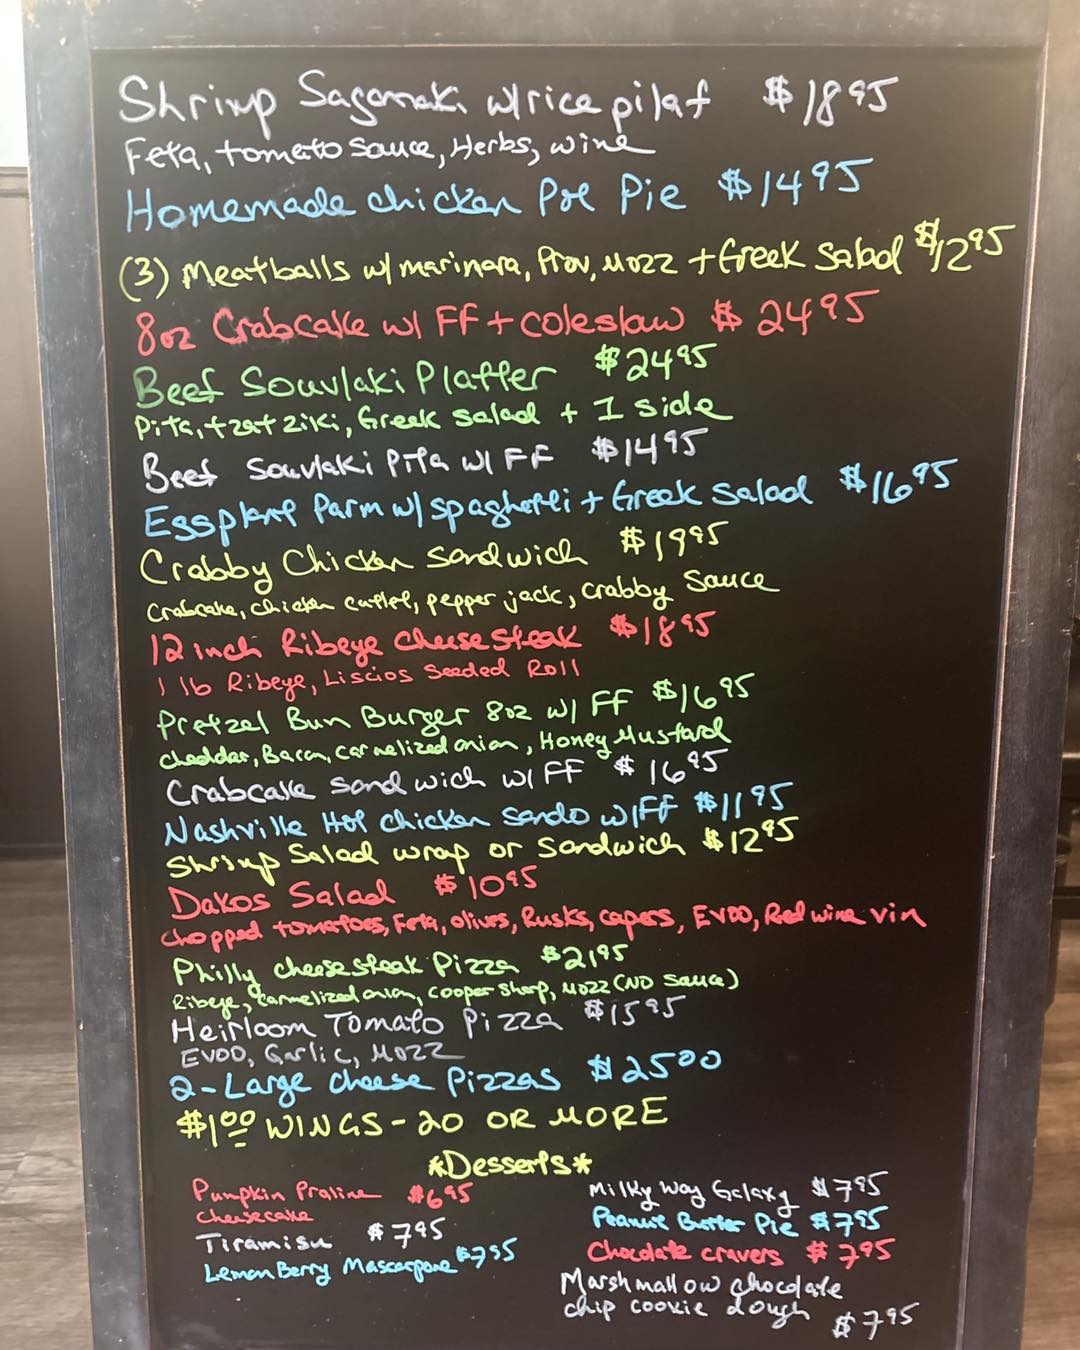 Shrimp Sagonaki w/rice pilaf $18 95
Feta, tomato sauce, Herbs, wine
Homemade chicken Pot Pie $14 95
(3) Meatballs w/ marinara, Prov, Mozz + Greek Salad $12 95
8oz Crabcake w/ FF + coleslaw $24 95
Beef Souvlaki Platter $24 95
Pita, tzatziki, Greek salad + 1 side
Beef Souvlaki Pita w/ FF $14 95
Eggplant Parm w/ spaghetti + Greek Salad $16 95
Crabby Chicken Sandwich $19 95
Crabcake, chicken cutlet, pepper jack, crabby sauce
12 inch Ribeye cheesesteak $18 95
1 lb Ribeye, Liscios Seeded Roll
Pretzel Bun Burger 8oz w/ FF $16 95
Cheddar, Bacon, carmelized onion, Honey Mustard
Crabcake sandwich w/ FF $16 95
Nashville Hot chicken sando w/FF $11 95
Shrimp Salad wrap or sandwich $12 95
Dakos Salad $10 95
Chopped tomatoes, Feta, olives, Rusks, capers, EVOO, Red wine vin
Philly cheesesteak Pizza $21 95
Ribeye, carmelized onion, Cooper Sharp, Mozz (NO sauce)
Heirloom Tomato Pizza $15 95
EVOO, Garlic, Mozz
2 - Large cheese Pizzas $25 00
$1 00 WINGS - 20 OR MORE
*Desserts*
Pumpkin Praline $6 95
cheesecake
Tiramisu $7 95
Lemon Berry Mascarpone $7 95
Milky Way Galaxy $7 95
Peanut Butter Pie $7 95
Chocolate cravers $7 95
Marshmallow chocolate
chip cookie dough $7 95